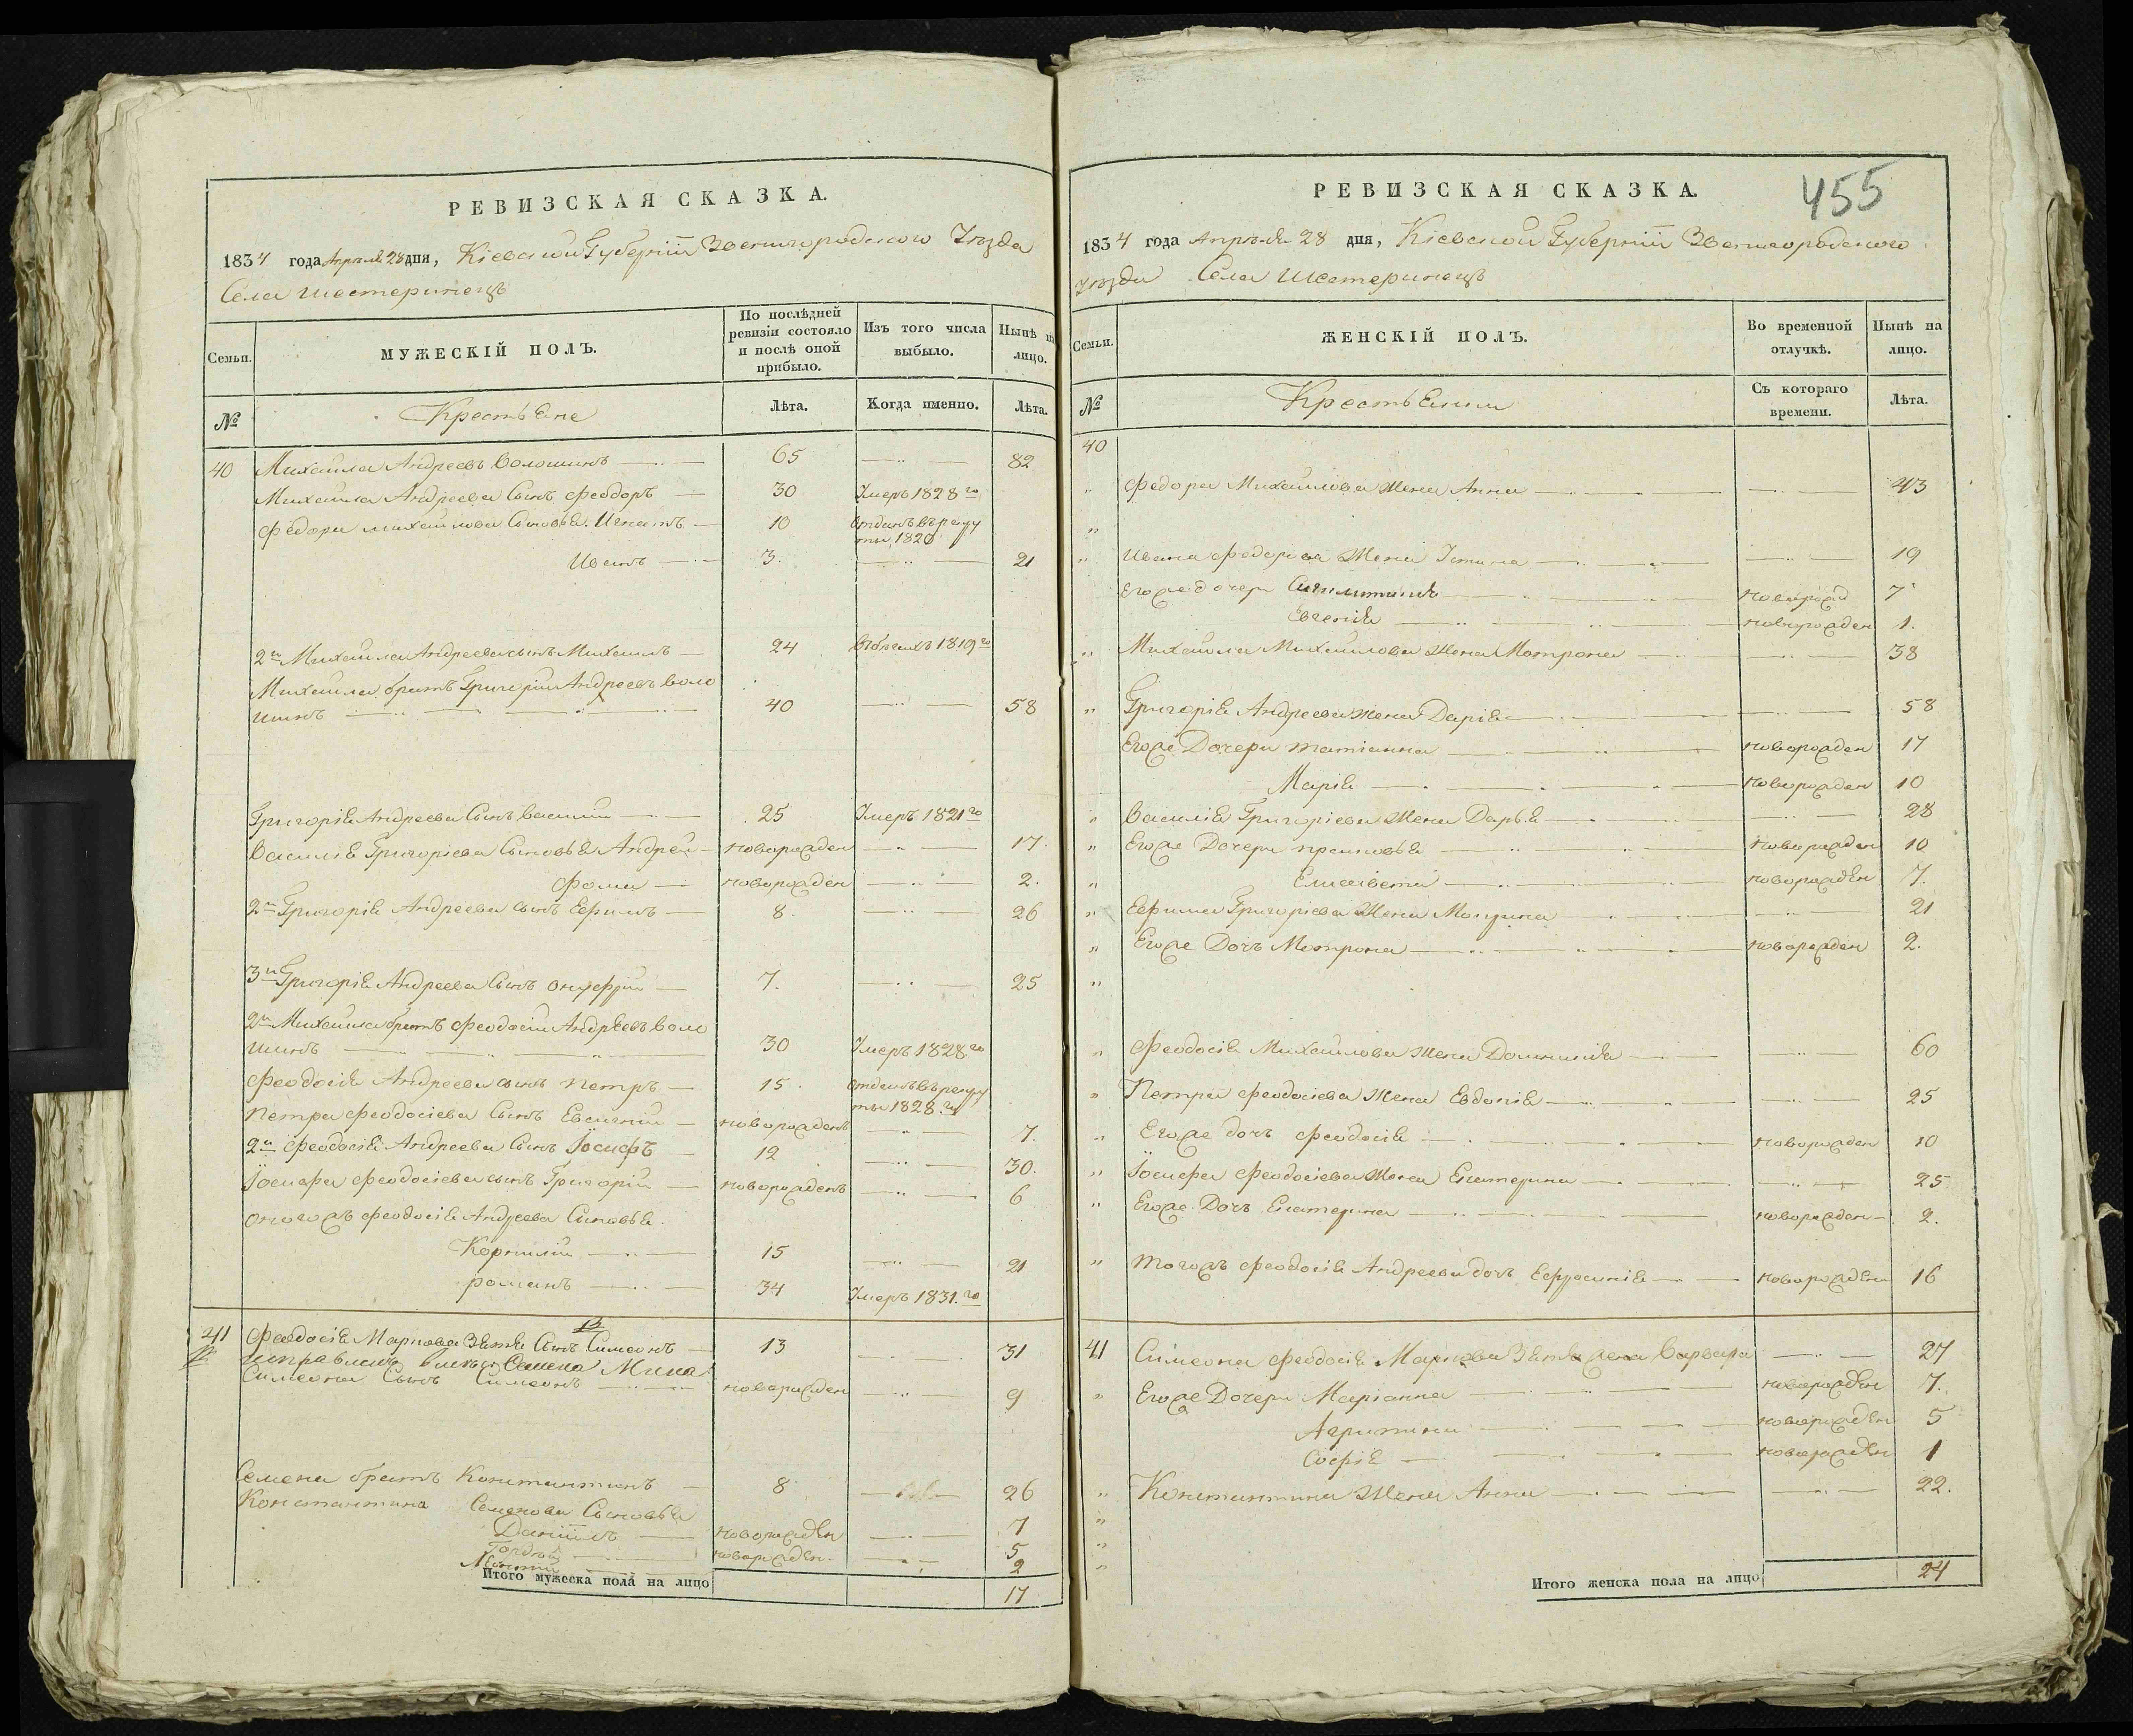 РЕВИЗСКАЯ СКАЗКА.
1834 года Апреля 28 дня, Кіевской Губерніи Звенигородского Уѣзда
Села Шестеринецъ
Семьи.
МУЖЕСКІЙ ПОЛЪ.
По послѣдней ревизіи состояло и послѣ оной прибыло.
Изъ того числа выбыло.
Нынѣ на лицо.
№
Крестьяне
Лѣта.
Когда именно.
Лѣта.
40 Михайла Андреевъ Волошинъ 65 82
Михайла Андреева Сынъ Феодоръ 30 Умеръ 1828го
Федора Михайлова Сыновья Игнатъ 10 отданъ въ рекру
ты 1820
Иванъ 3. 21
2й Михайла Андреева сынъ Михаилъ 24 въ бегахъ 1819го
Михайла братъ Григорій Андреевъ Воло
шинъ 40 58
Григорія Андреева Сынъ Василій 25 Умеръ 1821го
Василія Григоріева Сыновья Андрей новорожден 17.
Фома новорожден 2.
2й Григорія Андреева сынъ Ефимъ 8. 26
3й Григорія Андреева Сынъ Онуфрій 7. 25
2й Михайла братъ Феодосій Андреевъ Воло
шинъ 30 Умеръ 1828го
Феодосія Андреева сынъ Петръ 15. отданъ въ рекру
ты 1828го
Петра Феодосіева Сынъ Евгеній новорожденъ 7.
2й Феодосія Андреева Сынъ Іосифъ 12 30.
Іосифа Феодосіева сынъ Григорій новорожденъ 6
Оногожъ Феодосія Андреева Сыновья
Корнилій 15 21
Романъ 34 Умеръ 1831.го
41 Феодосія Маркова Зятя Сынъ Симеонъ 13 31
Симеона Сынъ Симеонъ новорожден 9
Семена братъ Константинъ 8 26
Константина Семенова Сыновья
Даніилъ новорожден 7
Гордѣй новорожден. 5
2
Итого мужеска пола на лицо 17
455
РЕВИЗСКАЯ СКАЗКА.
1834 года Апреля 28 дня, Кіевской Губерніи Звенигородского
Уѣзда Села Шестеринецъ
Семьи.
ЖЕНСКІЙ ПОЛЪ.
Во временной отлучкѣ.
Нынѣ на лицо.
№
Крестьянки
Съ котораго времени.
Лѣта.
40
" Федора Михайлова Жена Анна 43
"
" Ивана Федорова Жена Устина 19
Егоже дочери новорожд 7
Евгенія новорожден 1.
" Михайла Михайлова Жена Матрона 38
" Григорія Андреева Жена Дарія 58
Егоже Дочери Татіанна новорожден 17
Марія новорожден 10
" Василія Григоріева Жена Дарья 28
" Егоже Дочери Прасковья новорожден 10
" Елисавета новорожден 7.
" Ефима Григоріева Жена 21
" Егоже Дочь Матрона новорожден 2.
"
" Феодосія Михайлова Жена Домникія 60
" Петра Феодосіева Жена Евдокія 25
" Егоже дочь Феодосія новорожден 10
" Іосифа Феодосіева Жена Екатерина 25
" Егоже Дочь Екатерина новорожден 2.
" Тогожъ Феодосія Андреева дочь Ефросинія новорожден 16
41 Симеона Феодосія Маркова Зятя жена Варвара 27
" Егоже Дочери Маріанна новорожден 7.
Агрипина новорожден 5
Софія новорожден 1
" Константина Жена Анна 22.
"
"
"
Итого женска пола на лицо 24